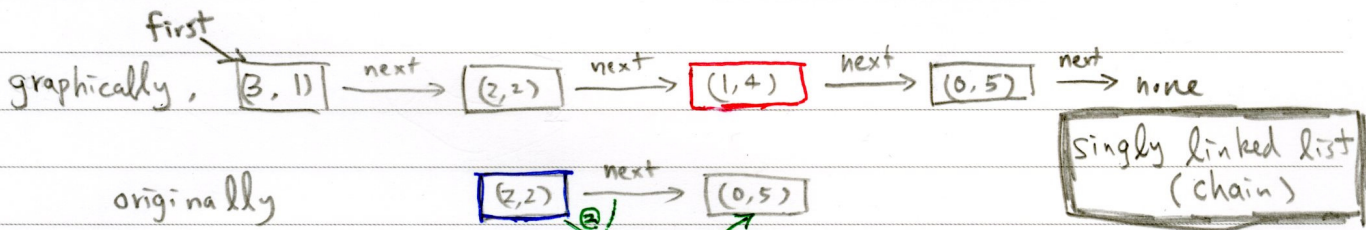 first
graphically, (3, 1) next (2,2) next (1,4) next (0,5) next none
singly linked list
(chain)
originally (2,2) next (0,5)
②